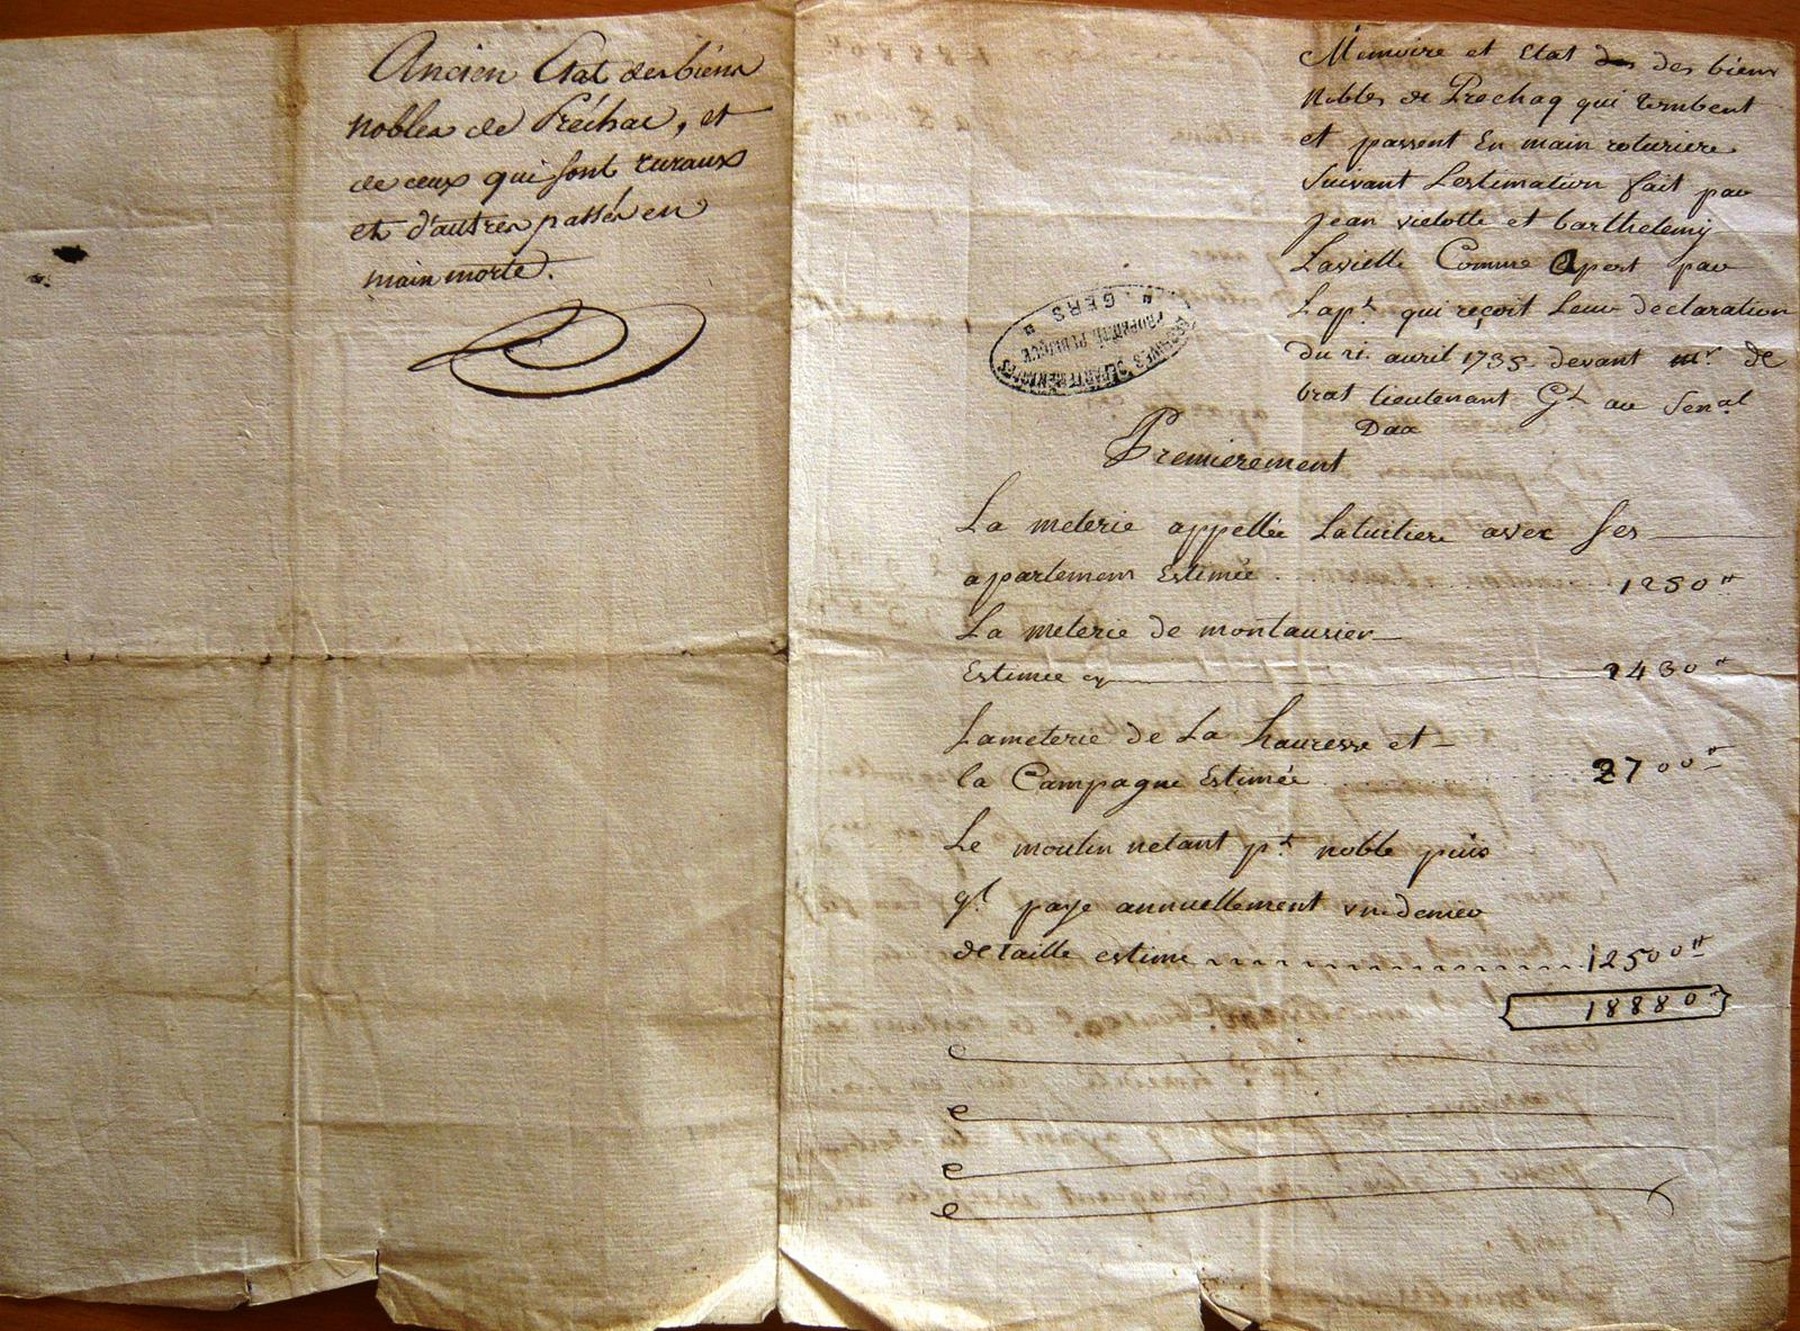 Ancien Etat des biens
nobles de Préchac, et
de ceux qui sont ruraux
et d'autres passés en
main morte.
Memoire et Etat des des biens
Nobles de Prechaq qui tombent
et passent En main roturiere
Suivant Lestimation fait par
jean vielotte et barthelemy
Lavielle Comme Apert par
Lapt qui reçoit Leur declaration
du 21. avril 1735 devant mr de
brat lieutenant Gl au Senal
Dax
GERS
ARCHIVES DÉPARTEMENTALES
PROPRIÉTÉ PUBLIQUE
Premierement
La meterie appellée Latuiliere avec Ses
apartemens Estimée 1250tt
La meterie de montaurier
Estimée cy 2430tt
Lameterie de La hauresse et
la Campagne Estimée 2700tt
Le moulin netant pt noble puis
ql paye annuellement un denier
de taille estimé 12500tt
18880tt